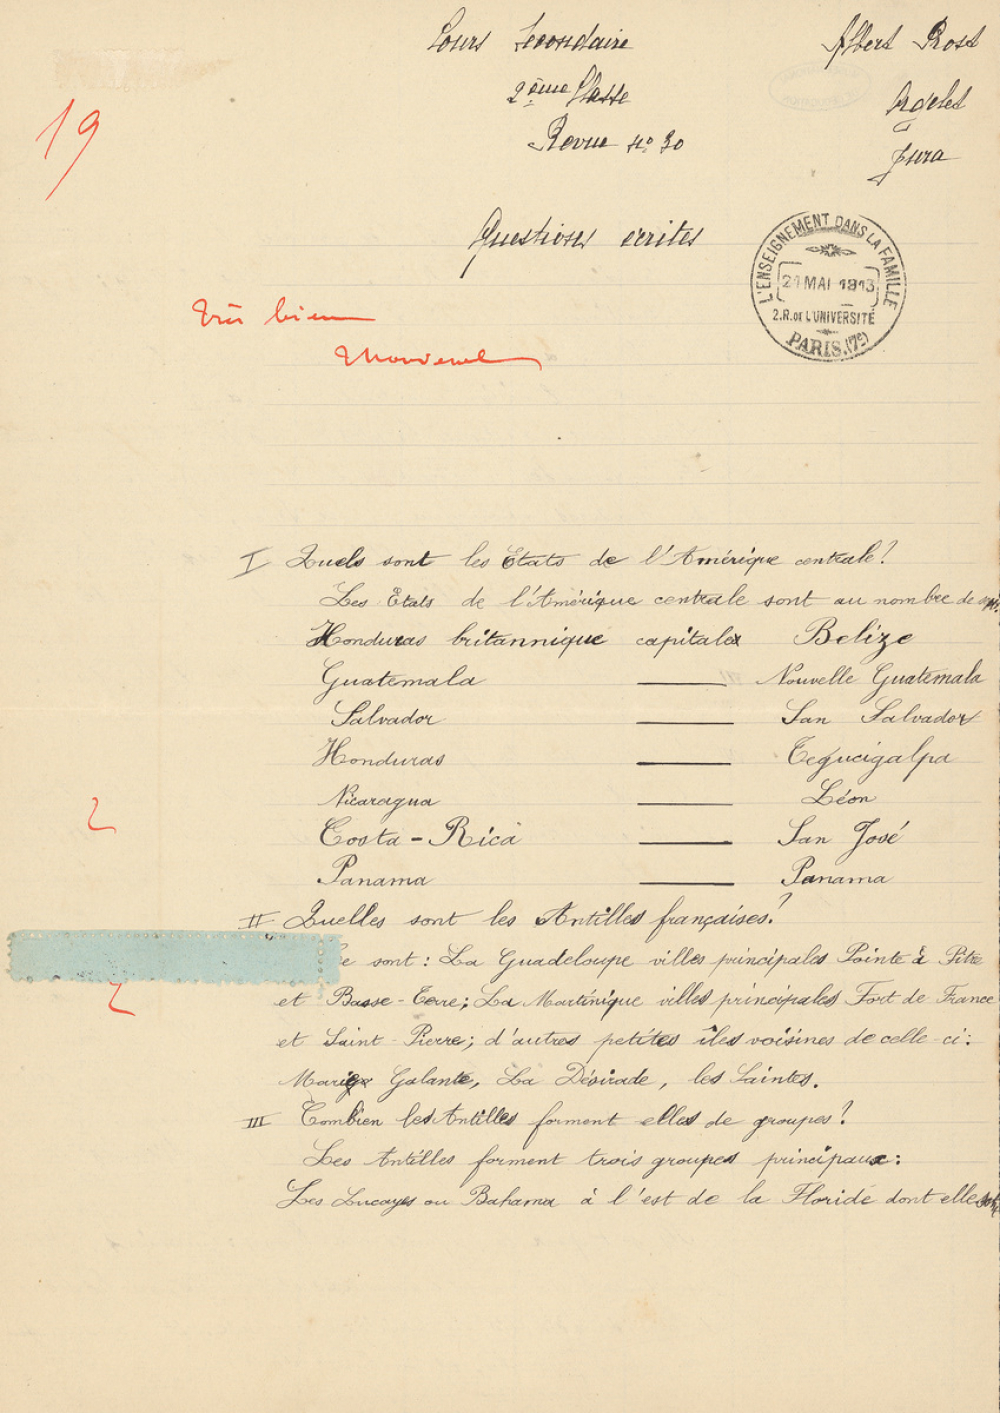 Cours Secondaire
Albert Rost
2ème Classe
Argelet
Revue No 30
Jura
19
Questions écrites
L'ENSEIGNEMENT DANS LA FAMILLE
21 MAI 1913
2.R. de L'UNIVERSITÉ
PARIS.(7e)
Très bien
I Quels sont les Etats de l'Amérique centrale?
Les Etats de l'Amérique centrale sont au nombre de sept.
Honduras britannique capitale Belize
Guatemala — Nouvelle Guatemala
Salvador — San Salvador
Honduras — Tegucigalpa
Nicaragua — Léon
Costa-Rica — San José
Panama — Panama
II Quelles sont les Antilles françaises?
sont: La Guadeloupe villes principales Pointe à Pitre
et Basse-Terre; La Martinique villes principales Fort de France
et Saint-Pierre; d'autres petites îles voisines de celle-ci:
Marie Galante, La Désirade, les Saintes.
III Combien les Antilles forment elles de groupes?
Les Antilles forment trois groupes principaux:
Les Lucayes ou Bahama à l'est de la Floride dont elles